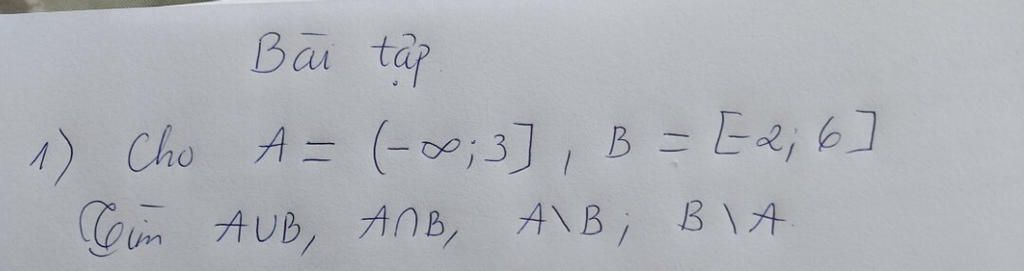 Bài tập
1) Cho A = (-∞; 3], B = [-2; 6]
Tìm A∪B, A∩B, A\B; B\A